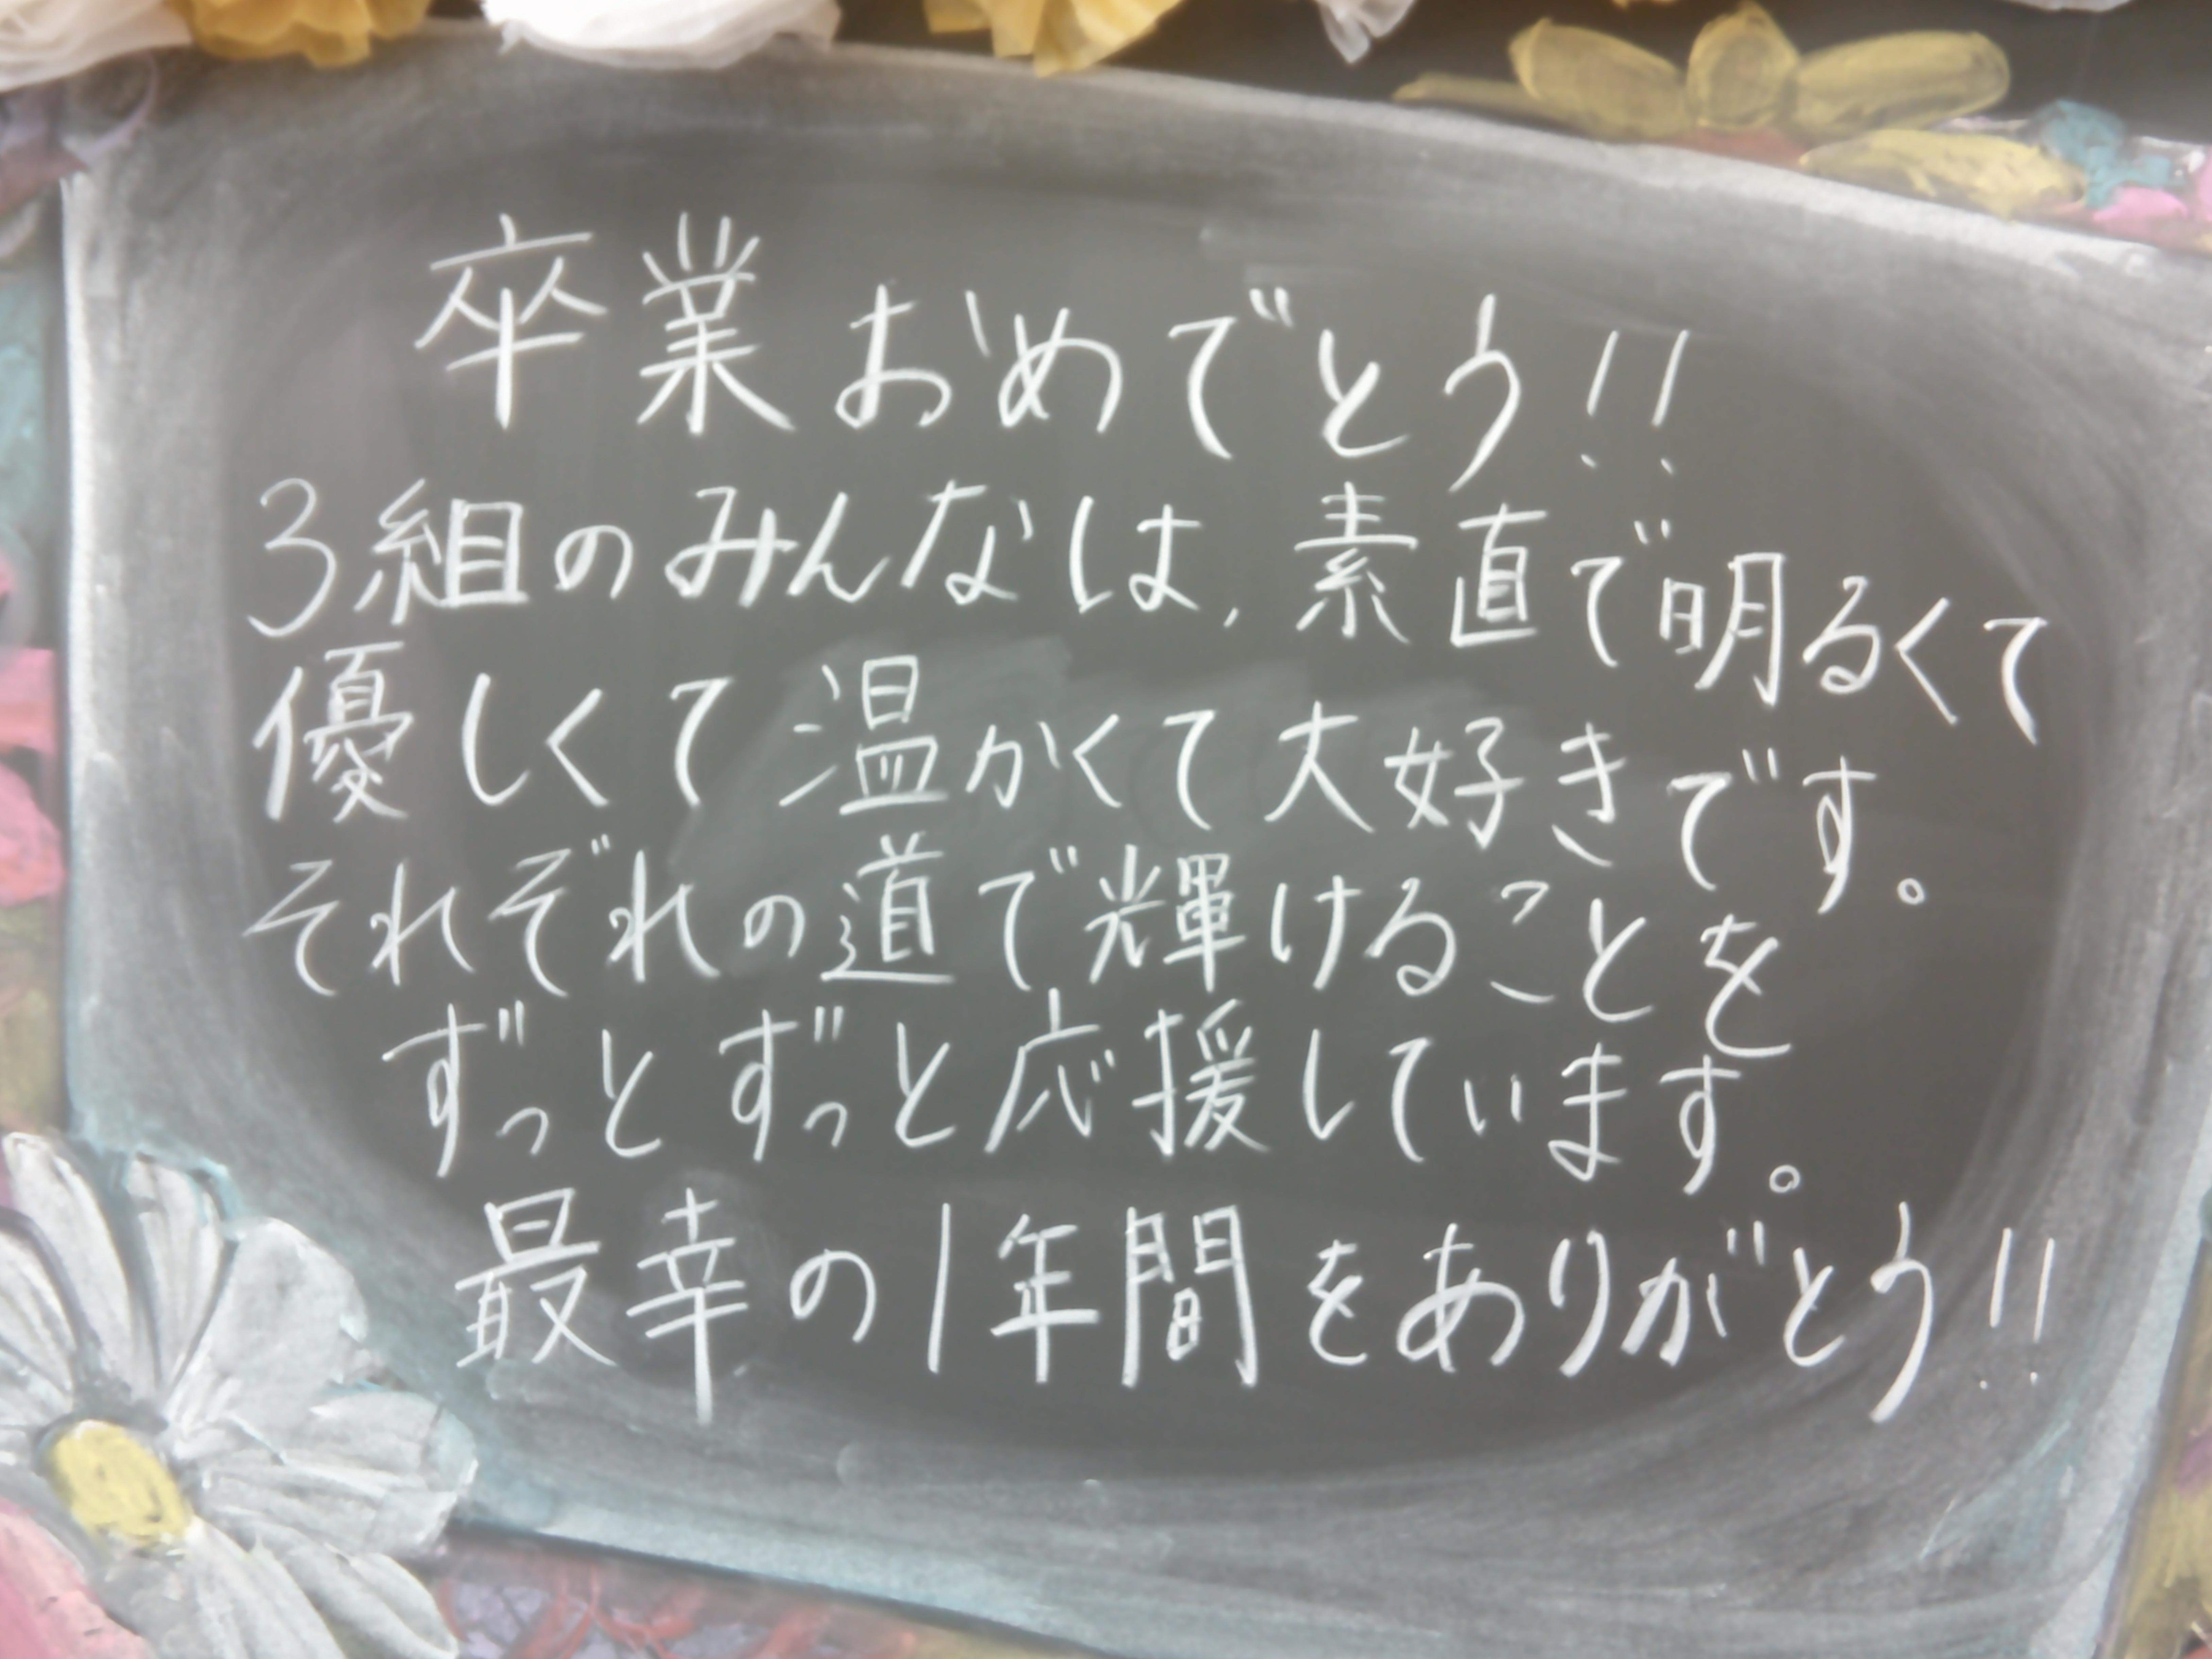 卒業おめでとう!!
3組のみんなは、素直で明るくて
優しくて温かくて大好きです。
それぞれの道で輝けることを
ずっとずっと応援しています。
最幸の1年間をありがとう!!